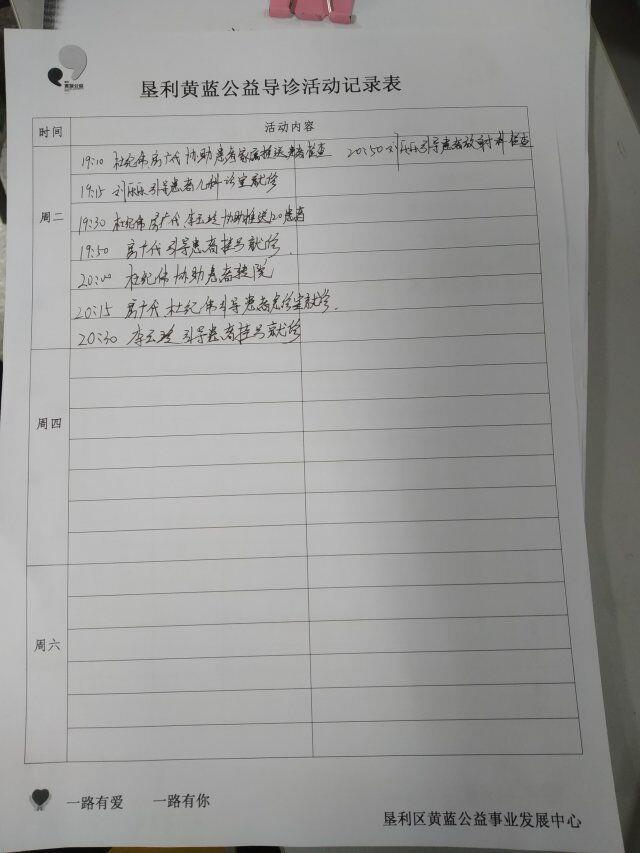 黄蓝公益
垦利黄蓝公益导诊活动记录表
时间 活动内容
周二
19:10 杜纪伟、房广代 协助患者家属推送患者检查 20:50 刘乐乐引导患者放射科检查
19:15 刘乐乐引导患者儿科诊室就诊
19:30 杜纪伟、房广代、李玉玲 协助推送120患者
19:50 房广代 引导患者挂号就诊.
20:00 杜纪伟 协助患者转院
20:15 房广代、杜纪伟引导患者急诊室就诊.
20:30 李玉玲 引导患者挂号就诊
周四
周六
一路有爱 一路有你
垦利区黄蓝公益事业发展中心